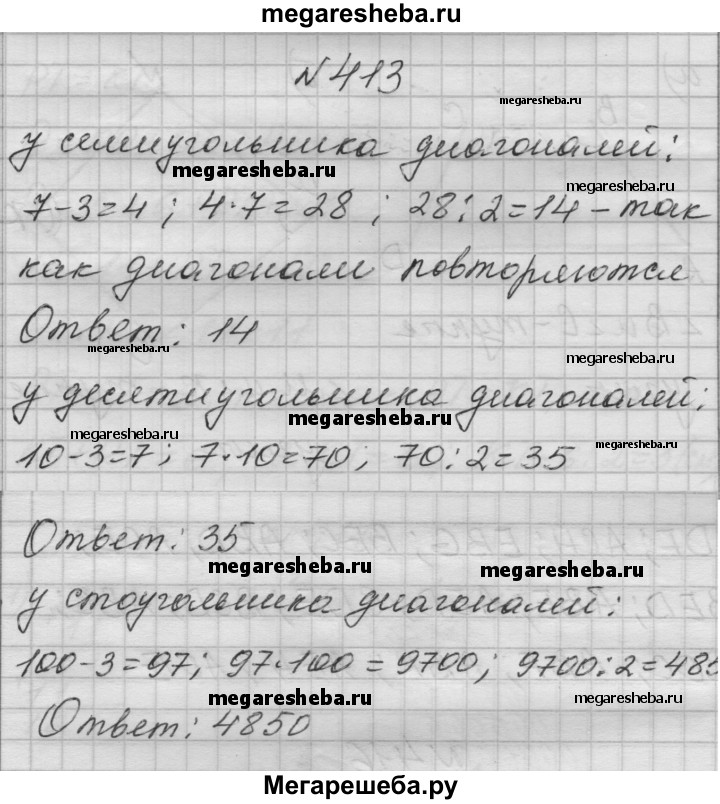 megaresheba.ru
№413
megaresheba.ru
у семиугольника диагоналей:
megaresheba.ru
megaresheba.ru
7-3=4; 4·7=28; 28:2=14 - так
как диагонали повторяются
Ответ: 14
megaresheba.ru
megaresheba.ru
у десятиугольника диагоналей:
megaresheba.ru
megaresheba.ru
megaresheba.ru
10-3=7; 7·10=70; 70:2=35
Ответ: 35
megaresheba.ru
megaresheba.ru
у стоугольника диагоналей:
100-3=97; 97·100=9700; 9700:2=485
megaresheba.ru
megaresheba.ru
Ответ: 4850
Мегарешеба.ру